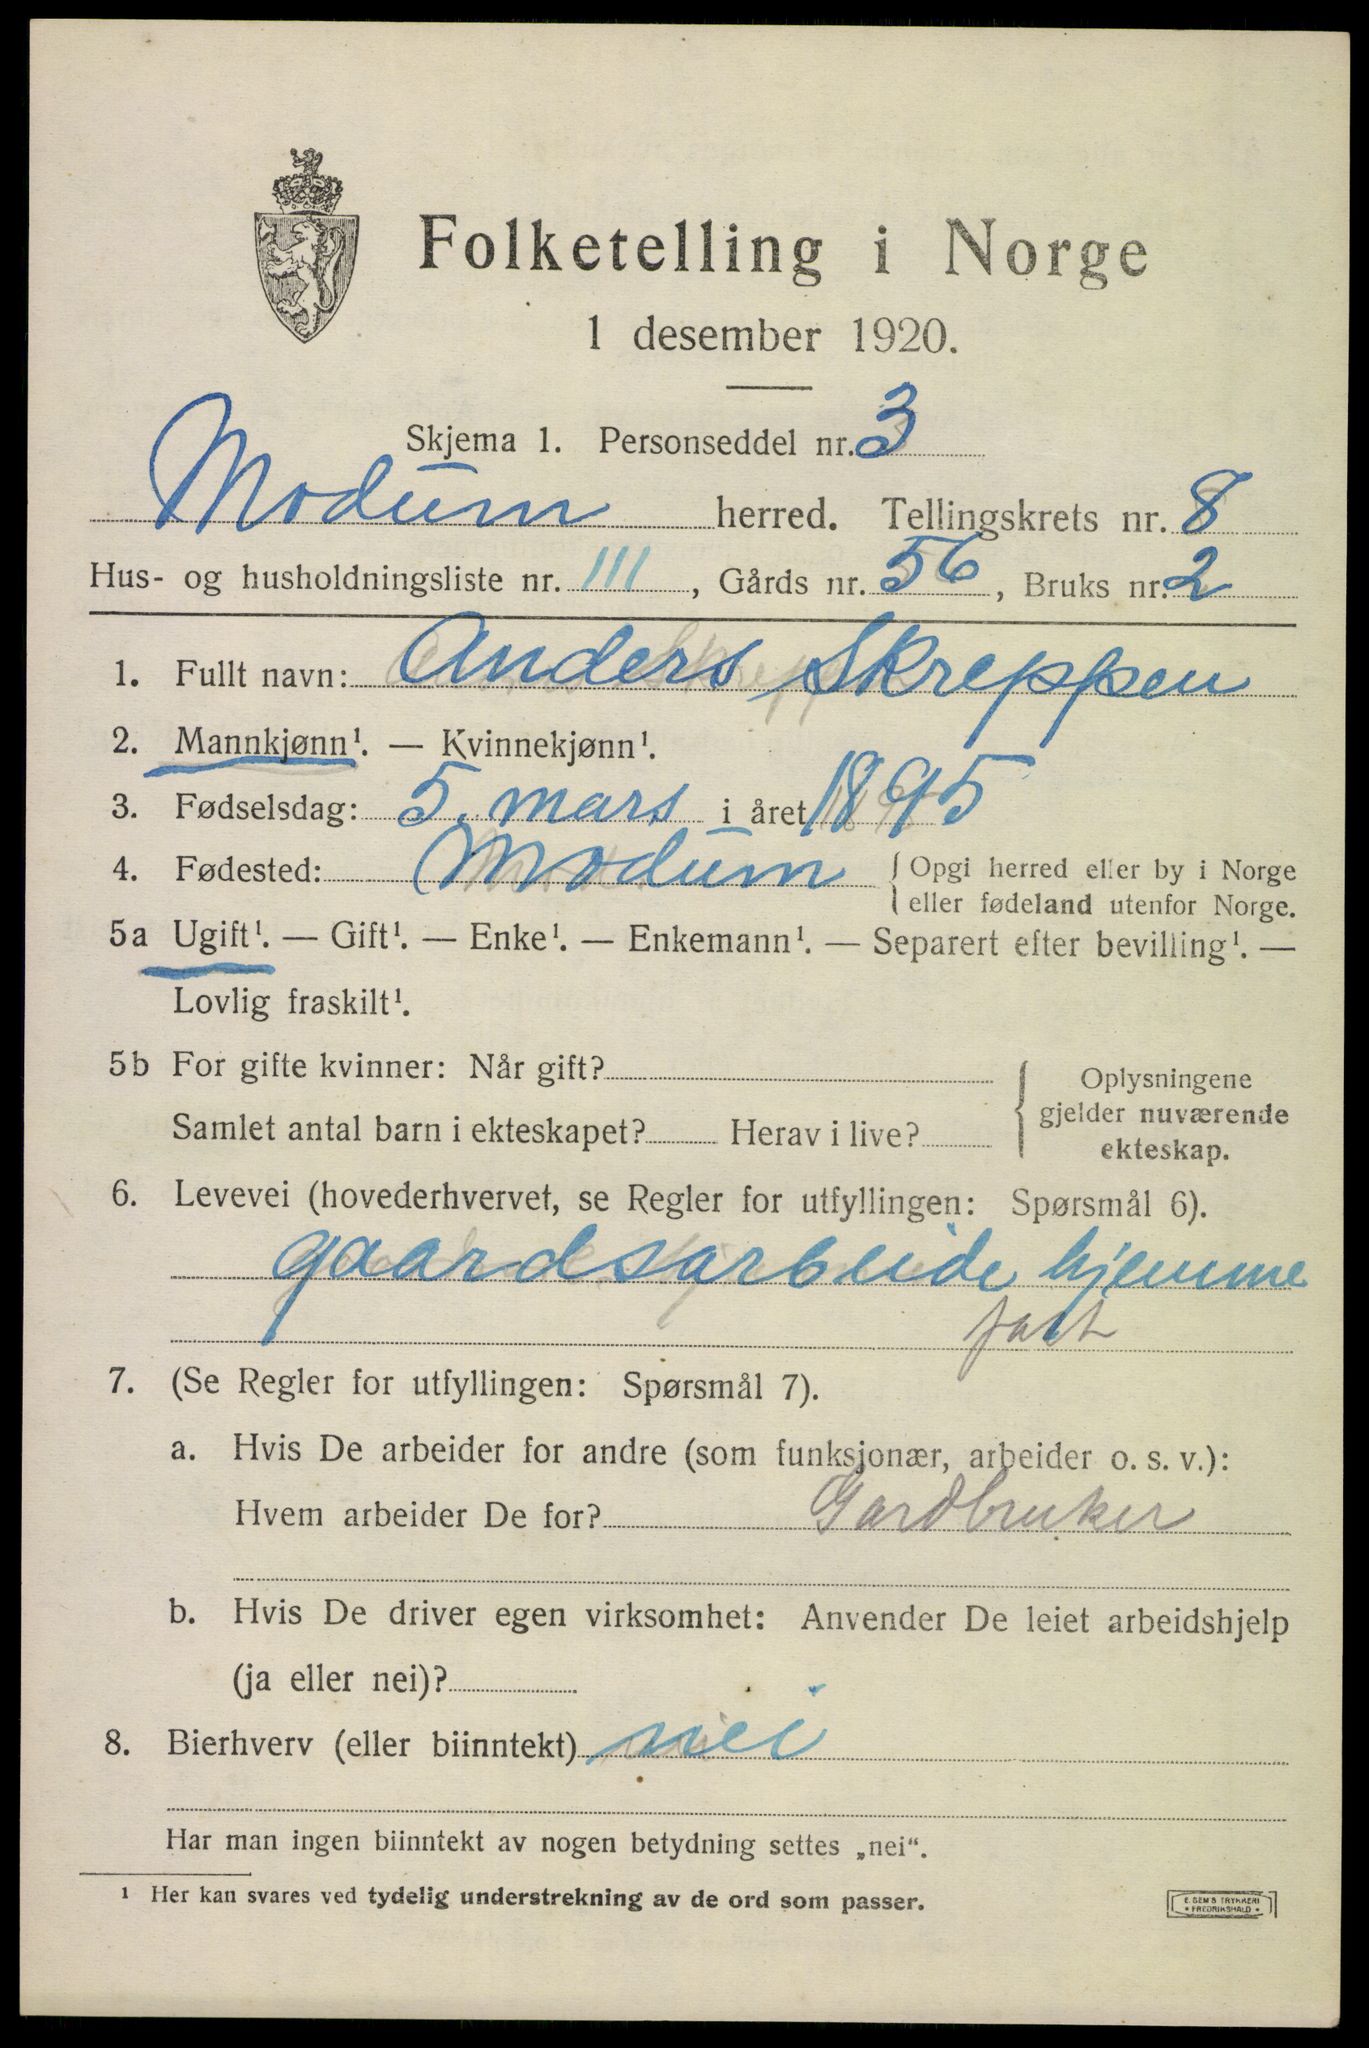 Folketelling i Norge
1 desember 1920.
Skjema 1. Personseddel nr. 3
Modum herred. Tellingskrets nr. 8
Hus- og husholdningsliste nr. 111, Gårds nr. 56, Bruks nr. 2
1. Fullt navn: Anders Skreppen
2. Mannkjønn¹. — Kvinnekjønn¹.
3. Fødselsdag: 5. mars i året 1895
4. Fødested: Modum { Opgi herred eller by i Norge
eller fødeland utenfor Norge.
5a Ugift¹. — Gift¹. — Enke¹. — Enkemann¹. — Separert efter bevilling¹. —
Lovlig fraskilt¹.
5b For gifte kvinner: Når gift?
Samlet antal barn i ekteskapet? Herav i live?
{ Oplysningene
gjelder nuværende
ekteskap.
6. Levevei (hovederhvervet, se Regler for utfyllingen: Spørsmål 6).
gaardsarbeide hjemme
fast
7. (Se Regler for utfyllingen: Spørsmål 7).
a. Hvis De arbeider for andre (som funksjonær, arbeider o. s. v.):
Hvem arbeider De for? Gardbruker
b. Hvis De driver egen virksomhet: Anvender De leiet arbeidshjelp
(ja eller nei)?
8. Bierhverv (eller biinntekt) nei
Har man ingen biinntekt av nogen betydning settes „nei“.
¹ Her kan svares ved tydelig understrekning av de ord som passer.
E. SEM'S TRYKKERI
• FREDRIKSHALD •